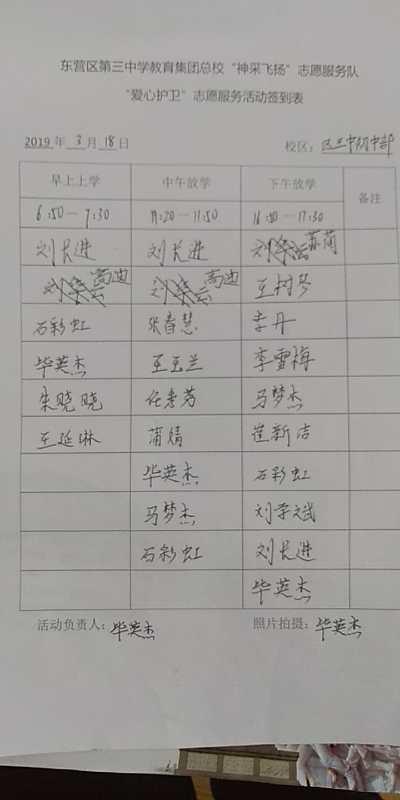 东营区第三中学教育集团总校“神采飞扬”志愿服务队
“爱心护卫”志愿服务活动签到表
2019年3月18日 校区：区三中初中部
早上上学 中午放学 下午放学 备注
6:50—7:30 11:20—11:50 16:50—17:30
刘长进 刘长进 苏蒲
高迪 高迪 王树琴
石彩虹 张春慧 李丹
毕英杰 王玉兰 李雪梅
朱晓晓 任秀芳 马梦杰
王延琳 蒲婧 崔新洁
毕英杰 石彩虹
马梦杰 刘学斌
石彩虹 刘长进
毕英杰
活动负责人：毕英杰 照片拍摄：毕英杰